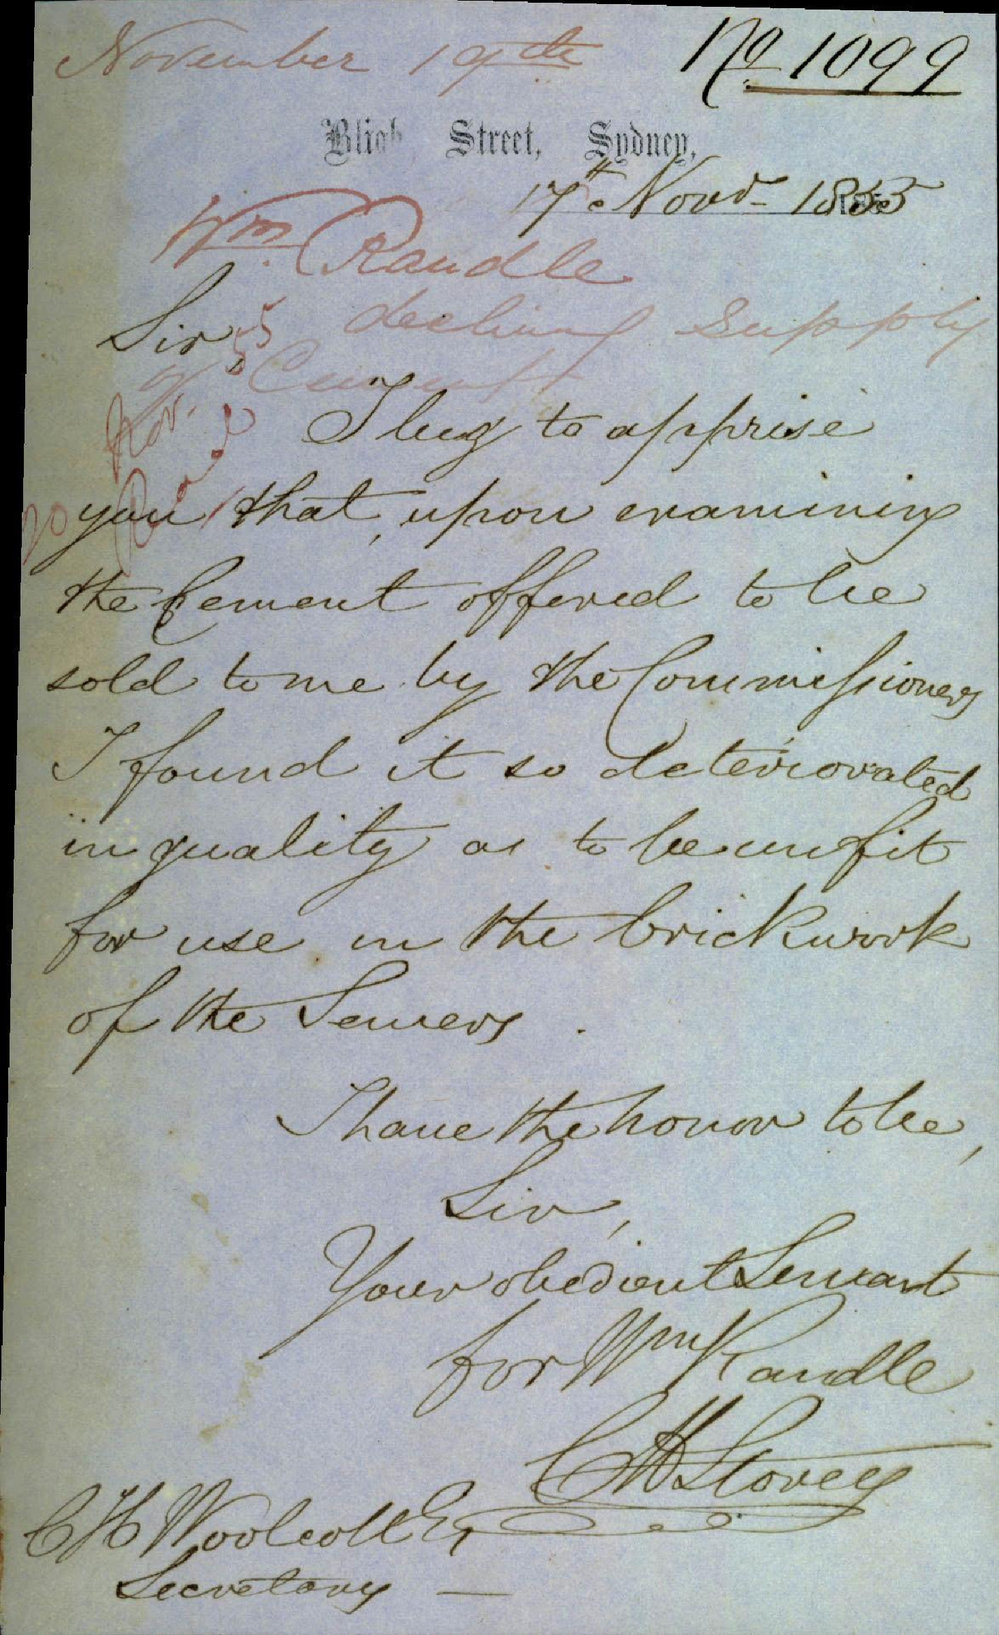 November 19th
No 1099
Bligh Street, Sydney,
17th Novr 1855
Wm. Randle
declining Supply
of Cement
Sir,
I beg to apprise
you that, upon examining
the Cement offered to be
sold to me by the Commissioners
I found it so deteriorated
in quality as to be unfit
for use in the brickwork
of the Sewers.
I have the honor to be,
Sir,
Your obedient Servant
for Wm Randle
C H Stovey
C H Woolcott Esq
Secretary
Read
20 Nov. 55